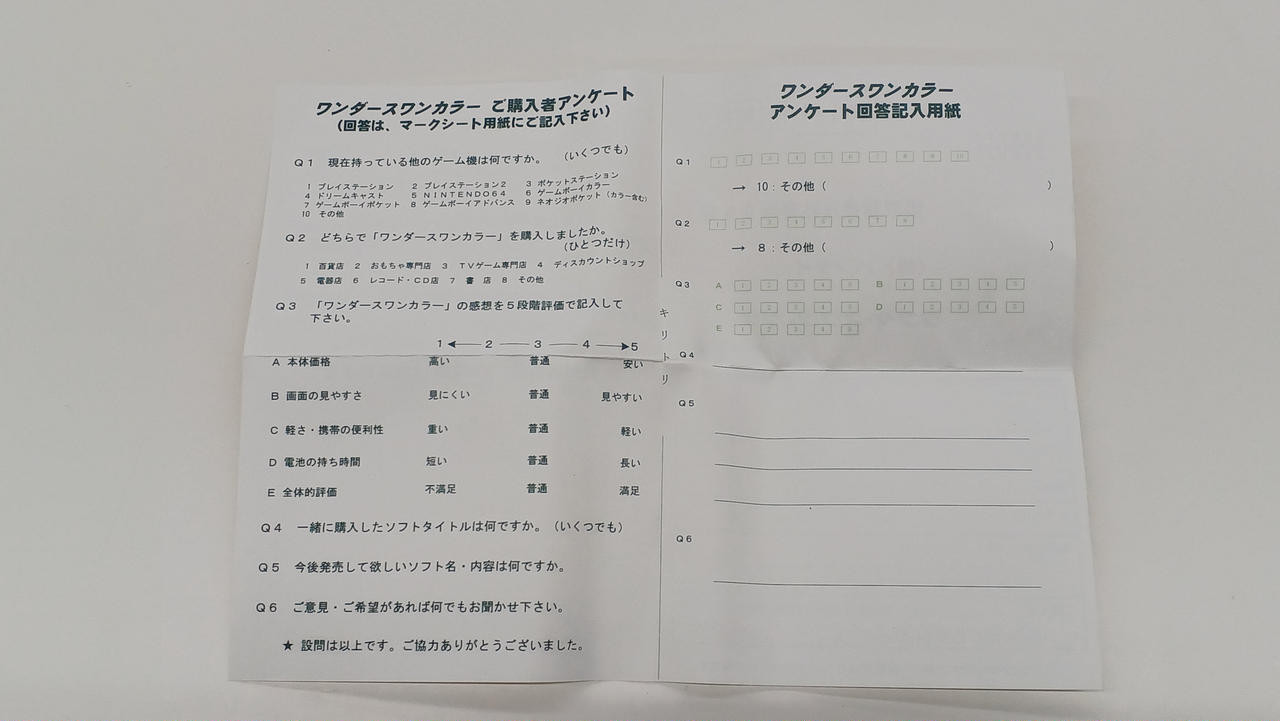 ワンダースワンカラー ご購入者アンケート
(回答は、マークシート用紙にご記入下さい)
Q1 現在持っている他のゲーム機は何ですか。 (いくつでも)
1 プレイステーション 2 プレイステーション2 3 ポケットステーション
4 ドリームキャスト 5 NINTENDO64 6 ゲームボーイカラー
7 ゲームボーイポケット 8 ゲームボーイアドバンス 9 ネオジオポケット(カラー含む)
10 その他
Q2 どちらで「ワンダースワンカラー」を購入しましたか。
(ひとつだけ)
1 百貨店 2 おもちゃ専門店 3 TVゲーム専門店 4 ディスカウントショップ
5 電器店 6 レコード・CD店 7 書 店 8 その他
Q3 「ワンダースワンカラー」の感想を5段階評価で記入して
下さい。
1 ◀── 2 ── 3 ── 4 ──▶ 5
A 本体価格 高い 普通 安い
B 画面の見やすさ 見にくい 普通 見やすい
C 軽さ・携帯の便利性 重い 普通 軽い
D 電池の持ち時間 短い 普通 長い
E 全体的評価 不満足 普通 満足
Q4 一緒に購入したソフトタイトルは何ですか。(いくつでも)
Q5 今後発売して欲しいソフト名・内容は何ですか。
Q6 ご意見・ご希望があれば何でもお聞かせ下さい。
★ 設問は以上です。ご協力ありがとうございました。
キリトリ
ワンダースワンカラー
アンケート回答記入用紙
Q1 1 2 3 4 5 6 7 8 9 10
→ 10:その他( )
Q2 1 2 3 4 5 6 7 8
→ 8:その他( )
Q3 A 1 2 3 4 5 B 1 2 3 4 5
C 1 2 3 4 5 D 1 2 3 4 5
E 1 2 3 4 5
Q4
Q5
Q6